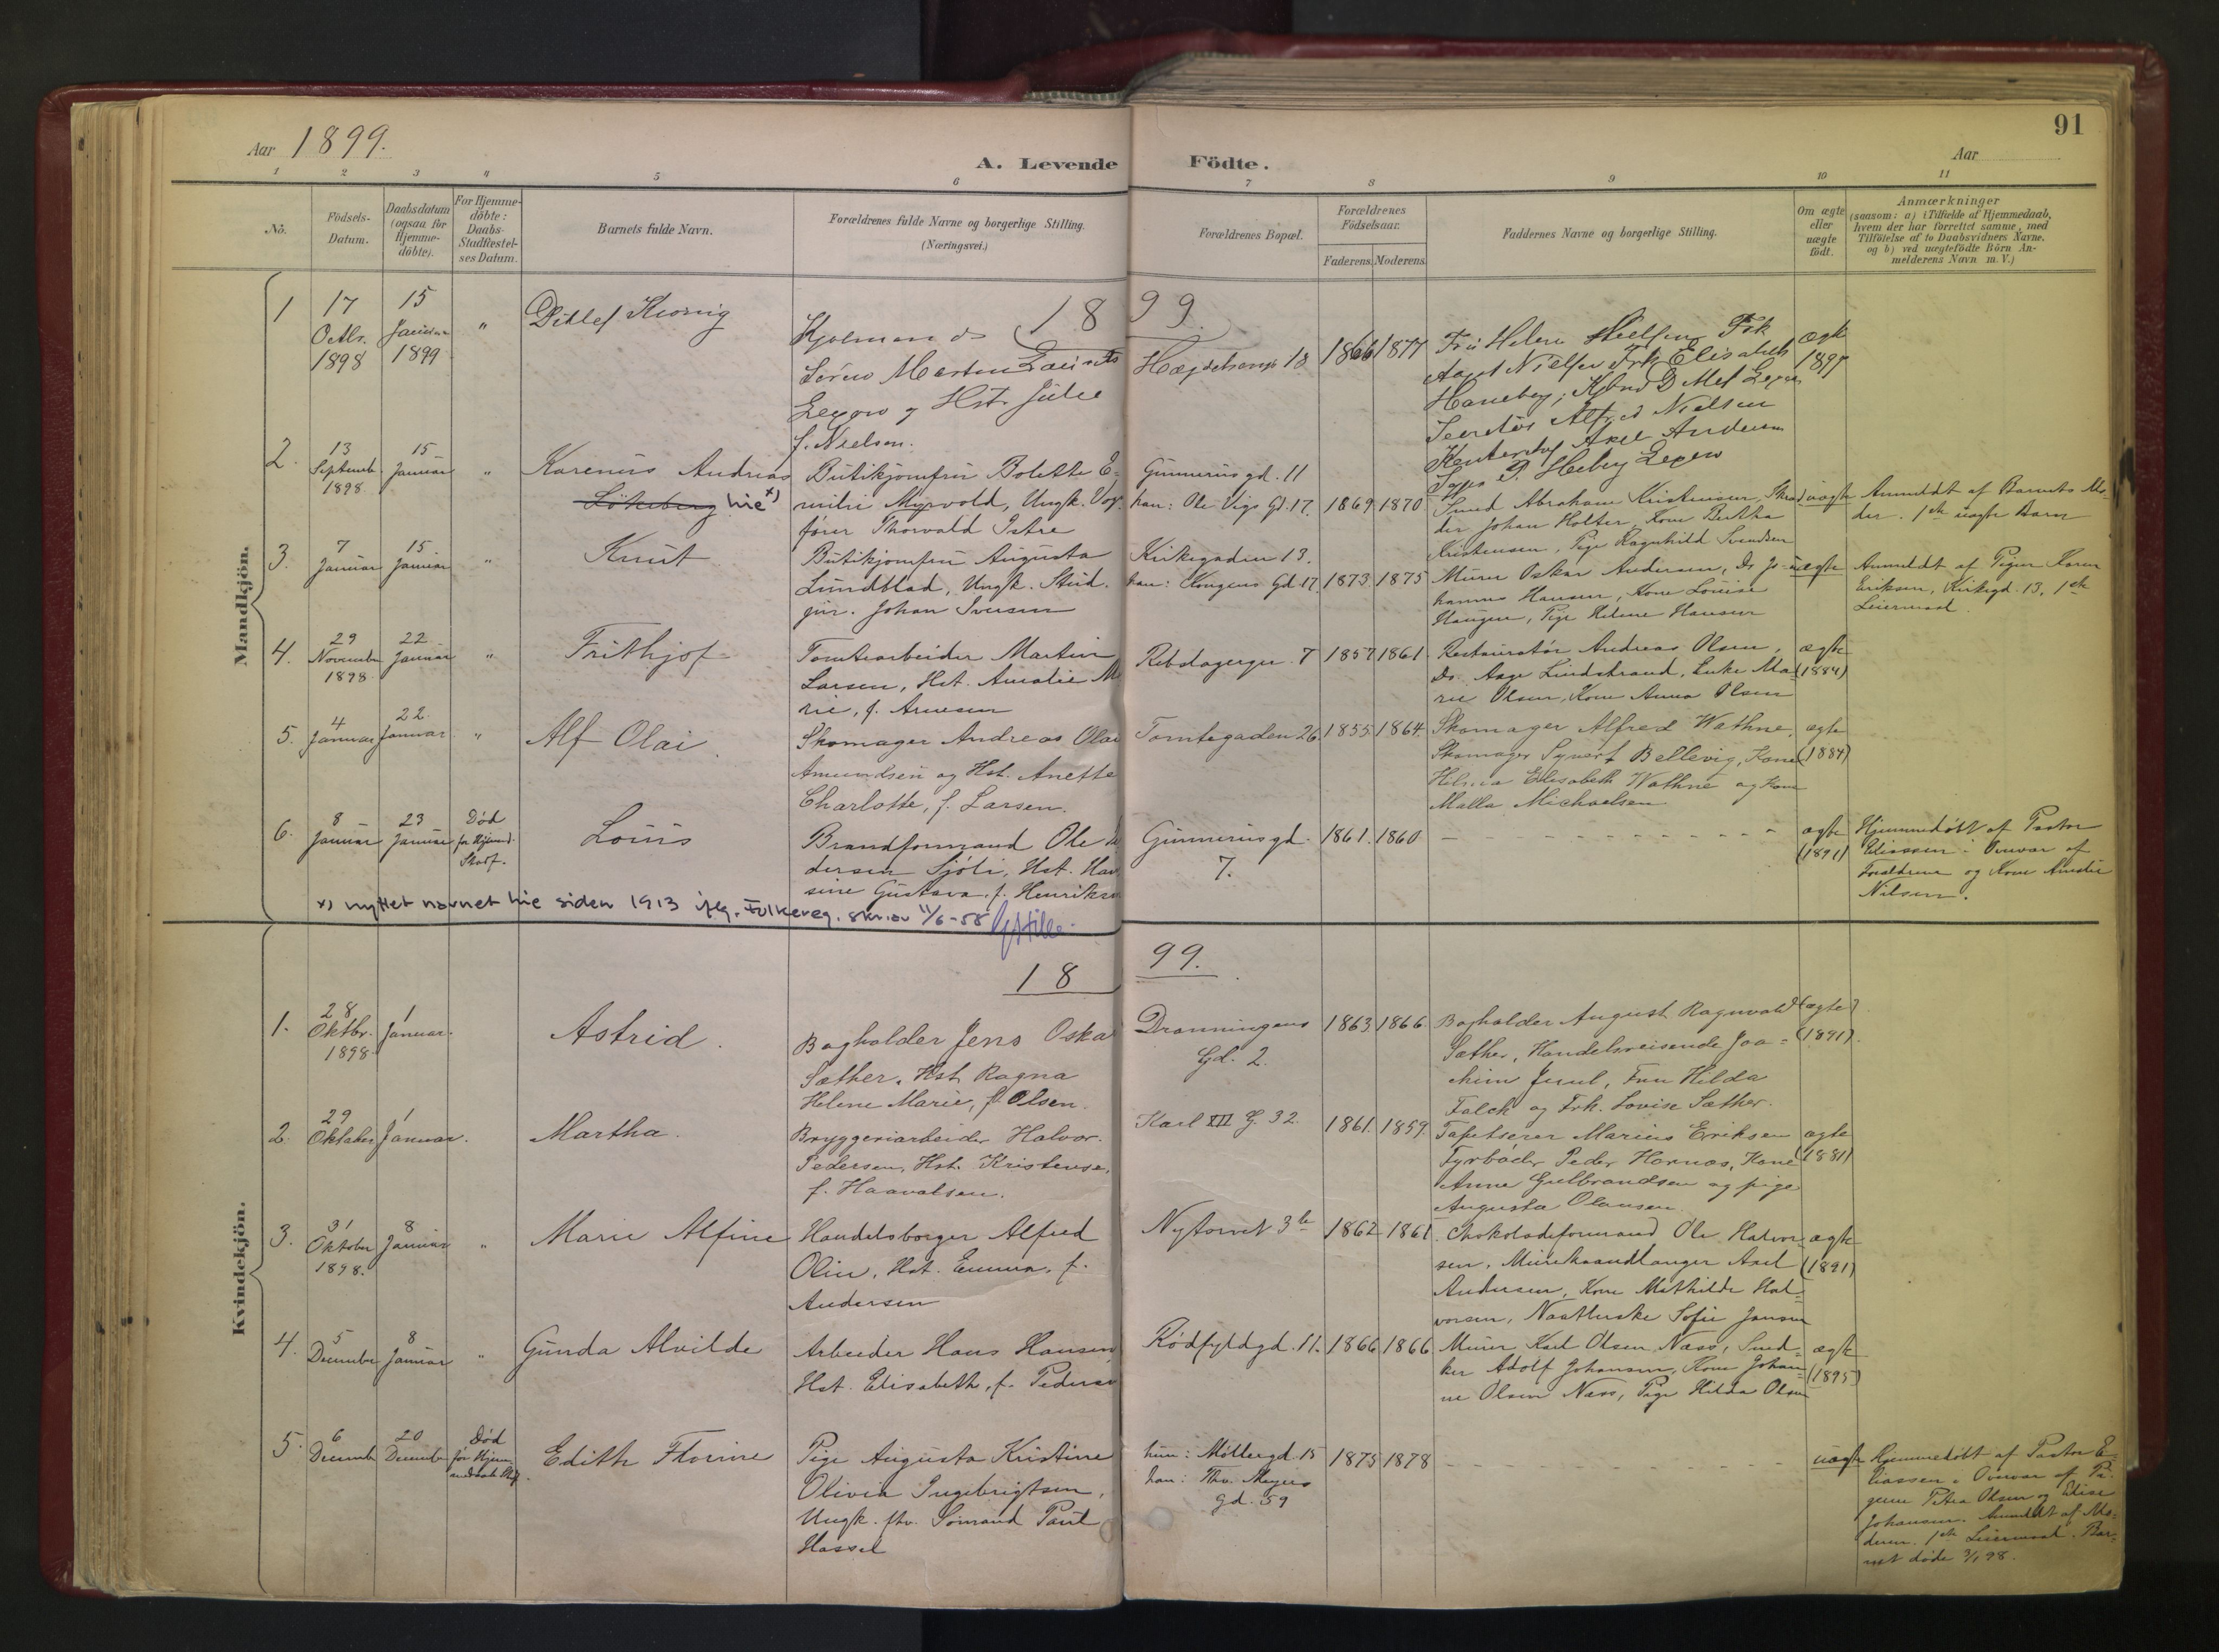 91
Aar 1899.
A. Levende Födte.
Aar
1 2 3 4 5 6 7 8 9 10 11
No.
Födsels-
Datum.
Daabsdatum
(ogsaa for
Hjemme-
döbte).
For Hjemme-
döbte:
Daabs-
Stadfæstel-
ses Datum.
Barnets fulde Navn.
Forældrenes fulde Navne og borgerlige Stilling.
(Næringsvei.)
Forældrenes Bopæl.
Forældrenes
Födselsaar.
Faderens. Moderens.
Faddernes Navne og borgerlige Stilling.
Om ægte
eller
uægte
födt.
Anmærkninger
(saasom: a) i Tilfælde af Hjemmedaab,
hvem der har forrettet samme, med
Tilföielse af to Daabsvidners Navne,
og b) ved uægtefödte Börn An-
melderens Navn m. V.)
Mandkjön.
1899.
1
17
Octbr.
1898
15
Januar
1899
"
Ditlef
Søren Morten
Lexow og Hst. Julie
f. Nielsen.
18
1866 1877
Fru Helene Nielsen Frk
Aagot Nielsen Frk Elisabeth
Secretær Alfred Nielsen
Axel Andersen
ægte
2.
13
Septembr
1898
15
Januar
"
Karenius Andreas
Lökeberg hie x)
Butikjomfru Bolette E-
milie Myrvold, Ungk.
Thorvald Istre
Gunnerius gd. 11
han: Ole Vigs Gd. 17.
1869 1870
Smed Abraham Kristensen,
der Johan Holter, Kone Bertha
Kristensen, Pige Ragnhild Svendsen
uægte
Anmeldt af Barnets Mo-
der. 1ste uægte Barn
3.
7
Januar
15
Januar
"
Knut
Butikjomfru Augusta
Lundblad, Ungk. Stud.
jur. Johan Iversen
Kirkegaden 13.
han: Kongens Gd. 17.
1873 1875
Murer Oskar Andersen, Do Jo-
hannes Hansen, Kone Louise
Haugen, Pige Helene Hansen
uægte
Anmeldt af Pigen Karen
Eriksen, Kirkegd. 13, 1ste
Leiermaal.
4.
29
Novembr
1898
22
Januar
"
Frithjof
Tomtearbeider Martin
Larsen, Hst. Amalie M
rie, f. Arnesen
Rebslagergr. 7
1857 1861
Restauratør Andreas Olsen,
Do. Aage Lindstrand, Enke Ma-
rie Olsen, Kone Anna Olsen
ægte
(1884)
5.
4
Januar
22.
Januar
"
Alf Olai.
Skomager Andreas Olai
Amundsen og Hst. Anette
Charlotte, f. Larsen.
Tomtegaden 26.
1855. 1864.
Skomager Alfred Wathne,
Skomager Syvert Bellevig, Kone
Hilma Elisabeth Wathne og Kone
Malla Michaelsen.
ægte
(1884)
6.
8
Januar
23
Januar
Død
før Hjemd.
Stadf.
Louis
Brandformand Ole
dersen Sjöli, Hst. Han
sine Gustava, f. Henriksen
Gunnerius gd.
7.
1861. 1860
ægte
(1891)
Hjemmedöbt af Pastor
Eliassen i Overvær af
Forældrene og Kone Amalie
Nilsen.
x) nyttet navnet hie siden 1913 iflg. Folkereg. skriv 11/6-58
Kvindekjön.
1899.
1.
28
Oktbr.
1898.
1
Januar.
Astrid.
Bogholder Jens Oska
Sæther, Hst. Ragna
Helene Marie, f. Olsen.
Dronningens
Gd. 2.
1863. 1866.
Bogholder August Ragnvald
Sæther, Handelsreisende Joa-
chim Juul, Fru Hilda
Falch og Frk. Lovise Sæther.
ægte
(1891).
2.
29
Oktober
1
Januar.
Martha.
Bryggeriarbeider Halvor
Pedersen, Hst. Kristense,
f. Haavalsen.
Karl XII G. 32.
1861. 1859.
Tapetserer Marius Eriksen
Fyrbøder Peder Hornæs, Kone
Anne Gulbrandsen og pige
Augusta Olausen.
ægte
(1881)
3.
31
Oktober
1898.
8
Januar
"
Marie Alfine
Handelsborger Alfred
Olin, Hst. Emma, f.
Andersen
Nytorvet 3 b
1862 1861
Chokoladeformand Ole Halvor-
sen, Murerhaandlanger Axel
Andersen, Kone Mathilde Hal-
vorsen, Sofie Jansen
ægte
(1891)
4.
5
December
8
Januar
"
Gunda Alvilde
Arbeider Hans Hansen,
Hst. Elisabeth, f. Pedersen
Rødfyldgd. 11.
1866 1866
Murer Karl Olsen Næss, Sned-
ker Adolf Johansen, Kone Johan-
ne Olsen Næss, Pige Hilda Olsen
ægte
(1895)
5.
6
December
20
December
Død
før Hjem-
Edith Florine
Pige Augusta Kristine
Olivia Ingebrigtsen,
Ungk. fhv. Sømand Paul
Hassel
hun: Møllergd. 15
han: Thv. Meyers
gd. 59
1875 1878
uægte
Hjemmedöbt af Pastor E-
liassen i Overvær af Pi-
gerne Petra Olsen og Elise
Johansen. Anmeldt af Mo-
deren. 1ste Leiermaal. Bar-
net døde 98.